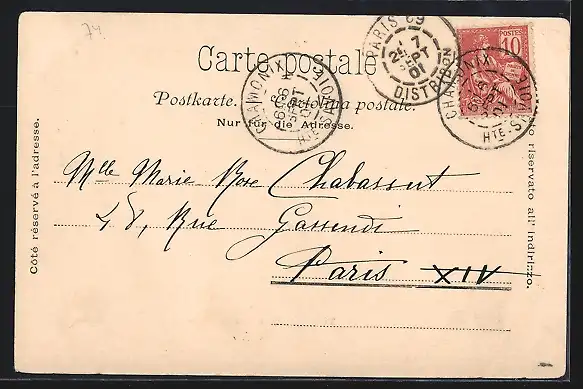 74.
Carte postale
Postkarte. Cartolina postale.
Nur für die Adresse.
CHAMONIX
6 SEPT 01
HTE-SAVOIE
PARIS 69
7 SEPT 01
DISTRIBUTION
POSTES
10
CHAMONIX
HTE-SAVOIE
Côté réservé à l'adresse.
Lato riservato all' indirizzo.
Mlle Marie Rose Chabassut
48, Rue Gassendi
Paris XIV